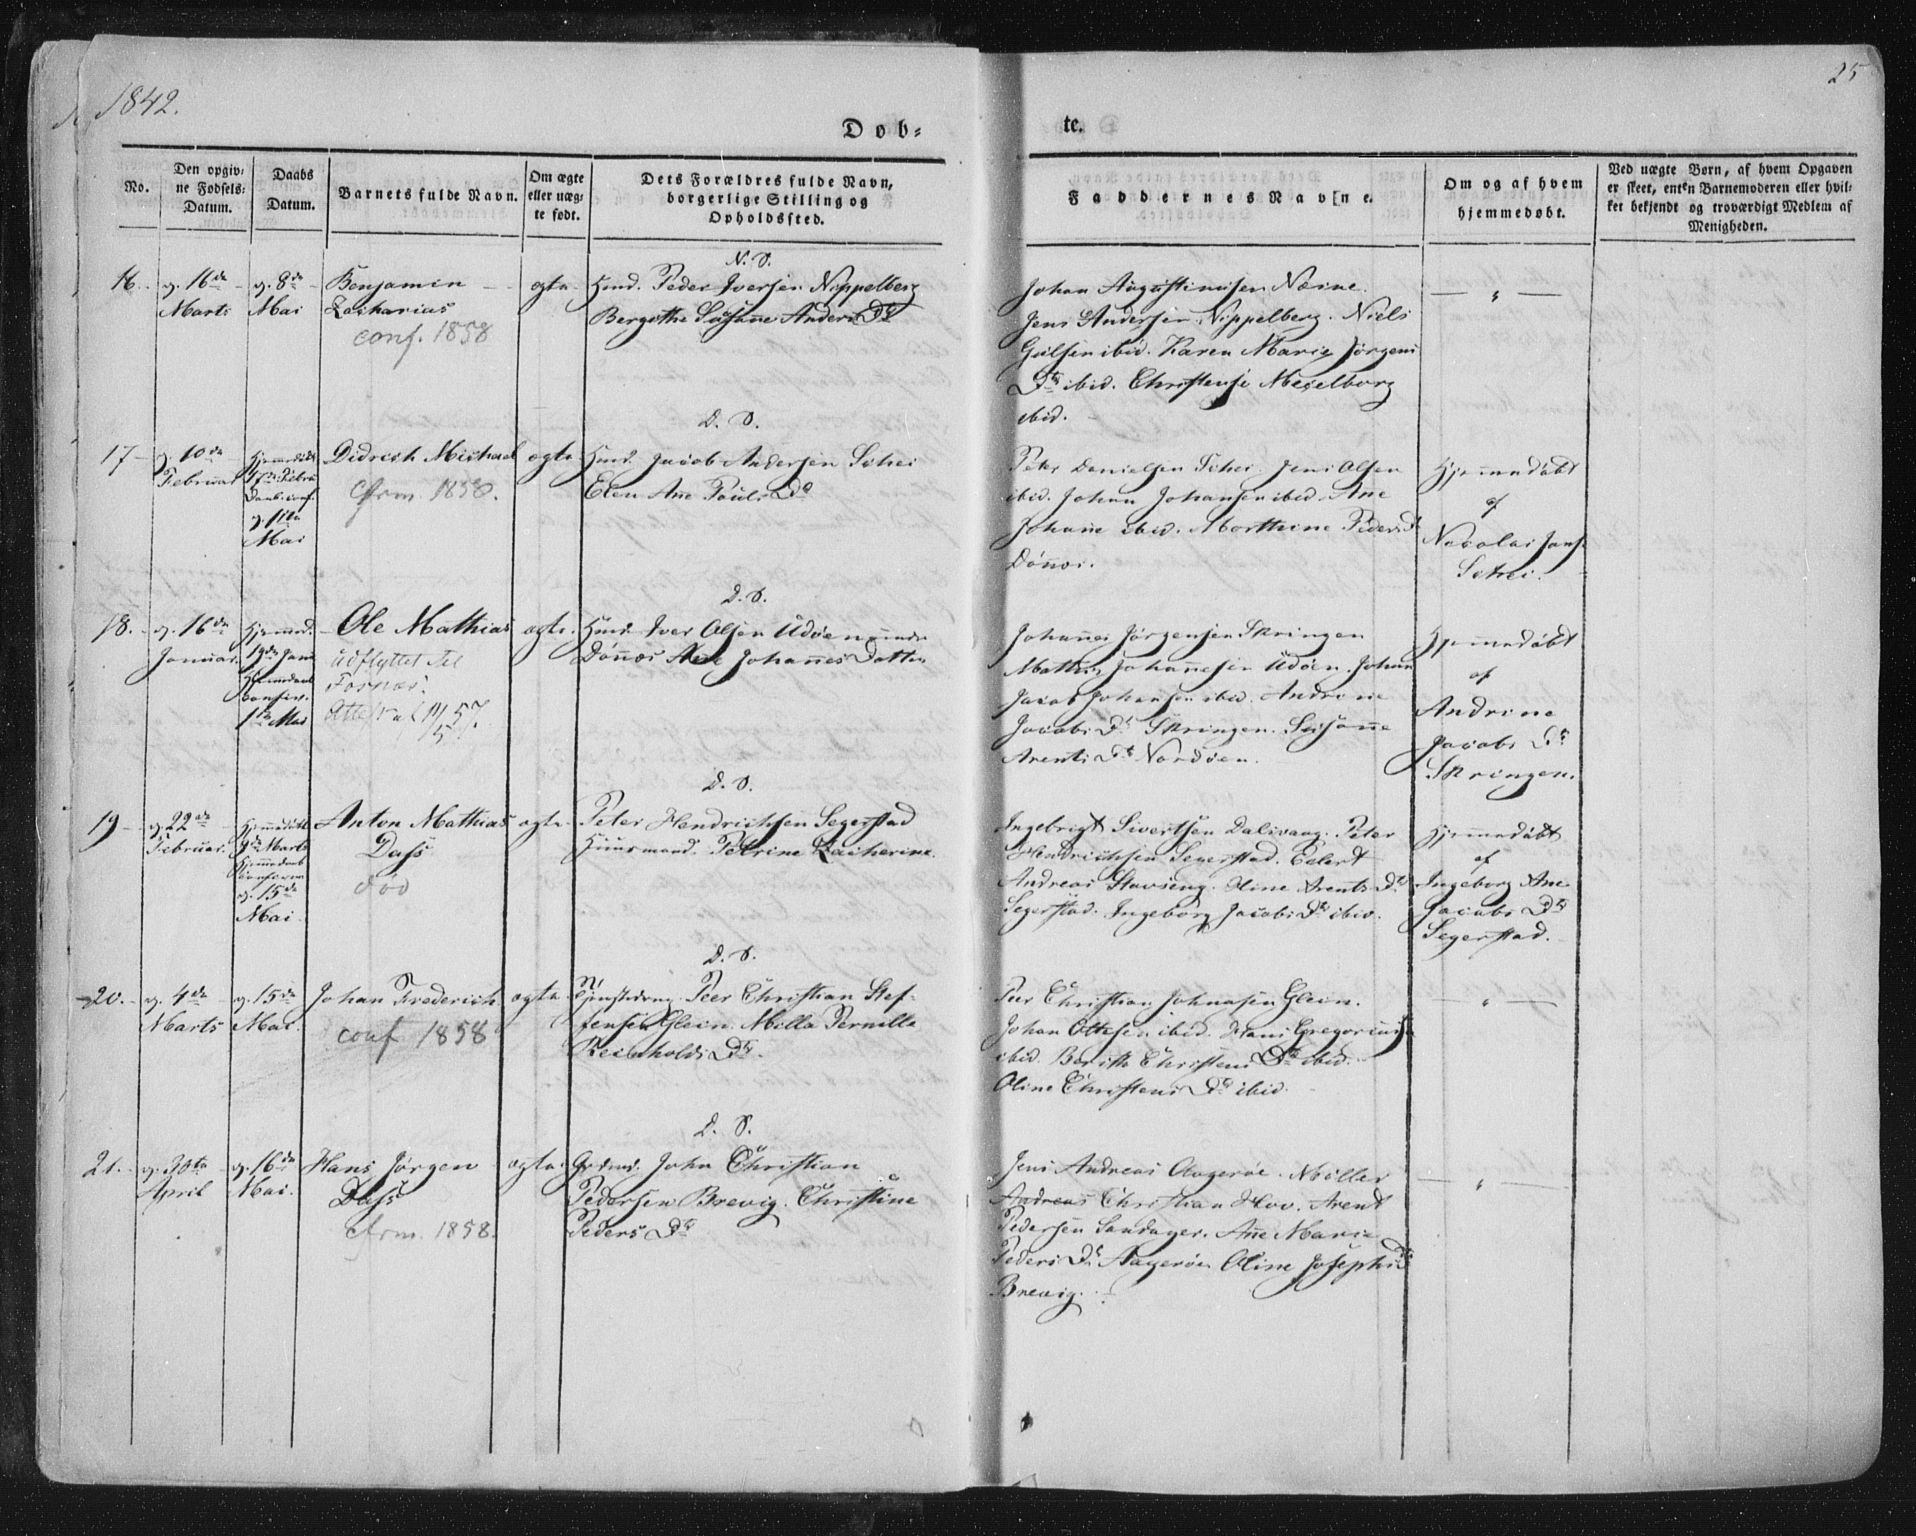 1842.
25
Døb-
te.
No.
Den opgiv-
ne Fødsels-
Datum.
Daabs
Datum.
Barnets fulde Navn.
Om ægte
eller uæg-
te født.
Dets Forældres fulde Navn,
borgerlige Stilling og
Opholdssted.
Faddernes Navne.
Om og af hvem
hjemmedøbt.
Ved uægte Børn, af hvem Opgaven
er skeet, enten Barnemoderen eller hvil-
ket bekjendt og troværdigt Medlem af
Menigheden.
N. S.
16. d. 16de
Marts
d. 8de
Mai
Benjamin
Zacharias
conf. 1858
ægte
Huusm. Peder Iversen Nippelberg
Bergithe Susanne Anders Dtr
Johan Augustinusen Næsne.
Jens Andersen Nippelberg. Niels
ibid. Karen Marie Jørgens
Dtr ibid. Christense Meselborg
ibid.
D. S.
17 d. 10de
Februar
Hjemmedøbt
17de Febru
Daab. conf.
d. 11te
Mai
Didrich Michael
Cfrm. 1858.
ægte
Huusm. Jacob Andersen Schei
Elen Ane Pauls Dtr
Peter Danielsen Schei. Jens Olsen
ibid. Johan Johansen ibid. Ane
Johanne ibid. Marthine Peders Dtr
Dønnæs.
Hjemmedøbt
af
Nicolai Jans.
Schei.
D. S.
18. d. 16de
Januar.
Hjemmed.
19de Janu
Hjemmedaab
confir.
1ste Mai
Ole Mathias
udflyttet til
Fosnæs.
Attest af 14/5 57.
ægte.
Huusm. Iver Olsen Udøen under
Dønnæs Ane Johannes Datter
Johannes Jørgensen Skringen
Mathis Johannesen Udøen. Johan
Jacob Johansen ibid. Andrine
Jacobs Dtr Skringen. Susanne
Arents Dtr Nordøen.
Hjemmedøbt
af
Andrine
Jacobs Dtr
Skringen.
D. S.
19 d. 22de
Februar.
Hjemmedøbt
9de Marts
Hjemmedaab
confirm
d. 15de
Mai.
Anton Mathias
Dass
død
ægte
Peter Hendrichsen Segerstad
Huusmand. Petrine Catherine.
Ingebrigt Sivertsen Dalsvaag. Peter
Hendrichsen Segerstad. Edert
Andreas Stavseng. Oline Arents Dtr
Segerstad. Ingeborg Jacobs Dtr ibid.
Hjemmedøbt
af
Ingeborg Ane
Jacobs Dtr
Segerstad.
D. S.
20. d. 4de
Marts
d. 15de
Mai.
Johan Frederich
conf 1858
ægte
Tjenstedreng. Peer Christian Stef-
fensen Glein. Milla Pernilla
Reinholds Dtr.
Peer Christian Johnasen Glein.
Johan Ottesen ibid. Hans Gregoriusen
ibid. Beritha Christens Dtr ibid.
Oline Christens Dtr ibid.
D. S.
21. d. 30te
April
d. 16de
Mai.
Hans Jørgen
Dass
Cfrm. 1858.
ægte.
Grdmd. John Christian
Pedersen Brevig. Christine
Peders Dtr
Jens Andreas Aagerøe. Møller
Andreas Christian Hov. Arent
Pedersen Sandager. Ane Marie
Peders Dtr Aagerøe Oline Josephs Dtr
Brevig.